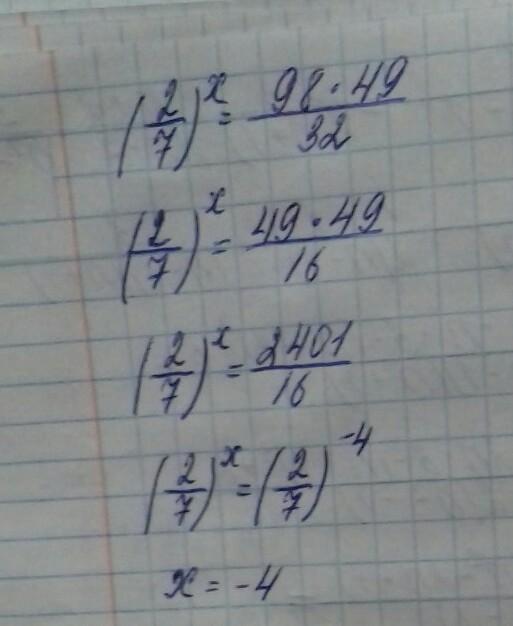 (2/7)^x = 98·49/32
(2/7)^x = 49·49/16
(2/7)^x = 2401/16
(2/7)^x = (2/7)^-4
x = -4